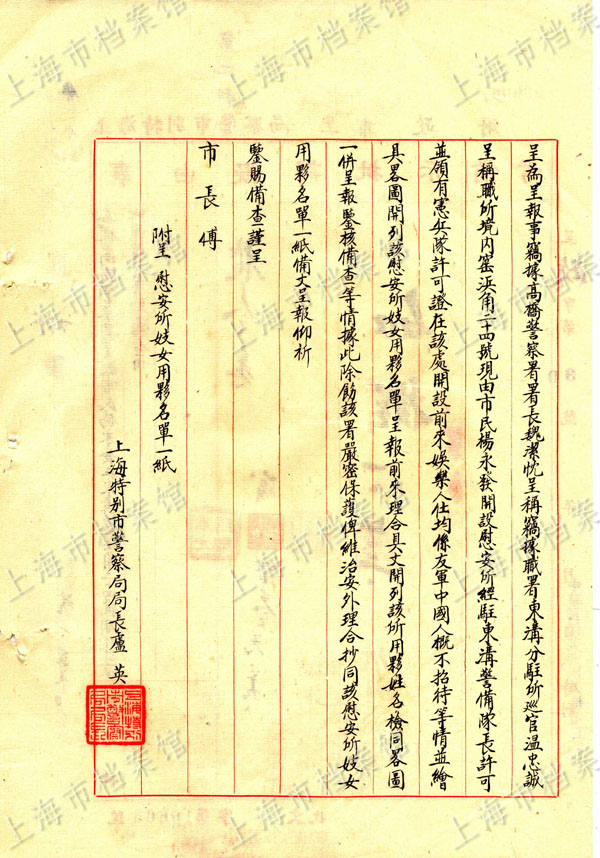 呈為呈報事竊據高橋警察署署長魏潔忱呈稱竊據職署東溝分駐所巡官溫忠誠
呈稱職所境內窰浜角二十四號現由市民楊永發開設慰安所經駐東溝警備隊長許可
並領有憲兵隊許可證在該處開設前來娛樂人仕均係友軍中國人概不招待等情並繪
具畧圖開列該慰安所妓女用夥名單呈報前來理合具文開列該所用夥姓名檢同畧圖
一併呈報鑒核備查等情據此除飭該署嚴密保護俾維治安外理合抄同該慰安所妓女
用夥名單一紙備文呈報仰祈
鑒賜備查謹呈
市長傅
附呈 慰安所妓女用夥名單一紙
上海特別市警察局局長盧英
上海市档案馆